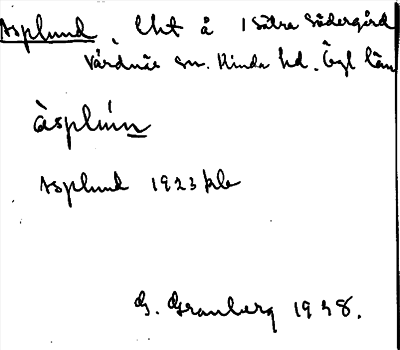 Asplund, lht å 1 Sätra Södergård
Vårdnäs sn. Kinda hd. Ögl län
àsplún
Asplund 1923 kb
G. Granberg 1938.